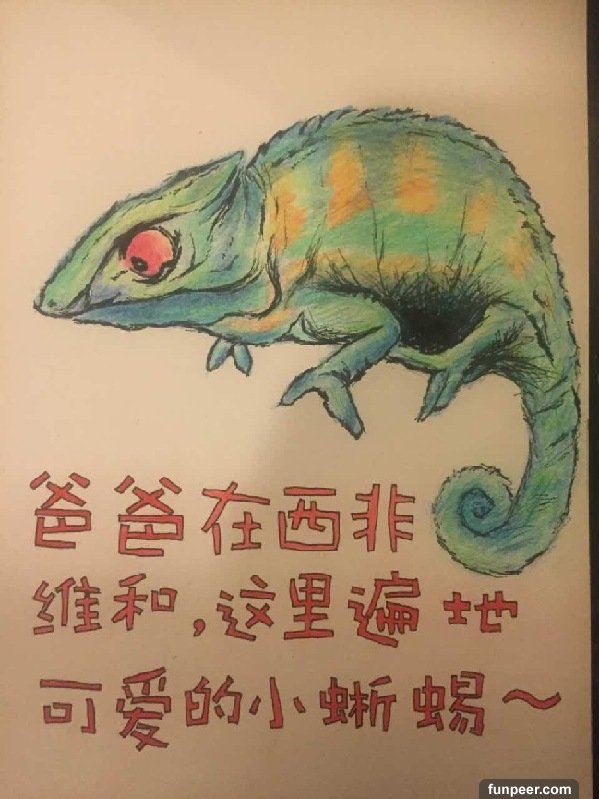 爸爸在西非
维和，这里遍地
可爱的小蜥蜴～
funpeer.com